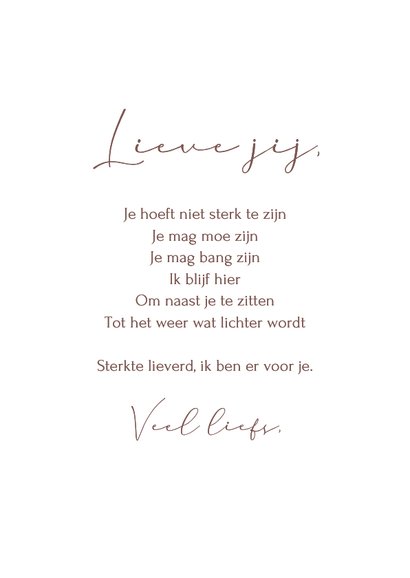 Lieve jij,
Je hoeft niet sterk te zijn
Je mag moe zijn
Je mag bang zijn
Ik blijf hier
Om naast je te zitten
Tot het weer wat lichter wordt
Sterkte lieverd, ik ben er voor je.
Veel liefs,